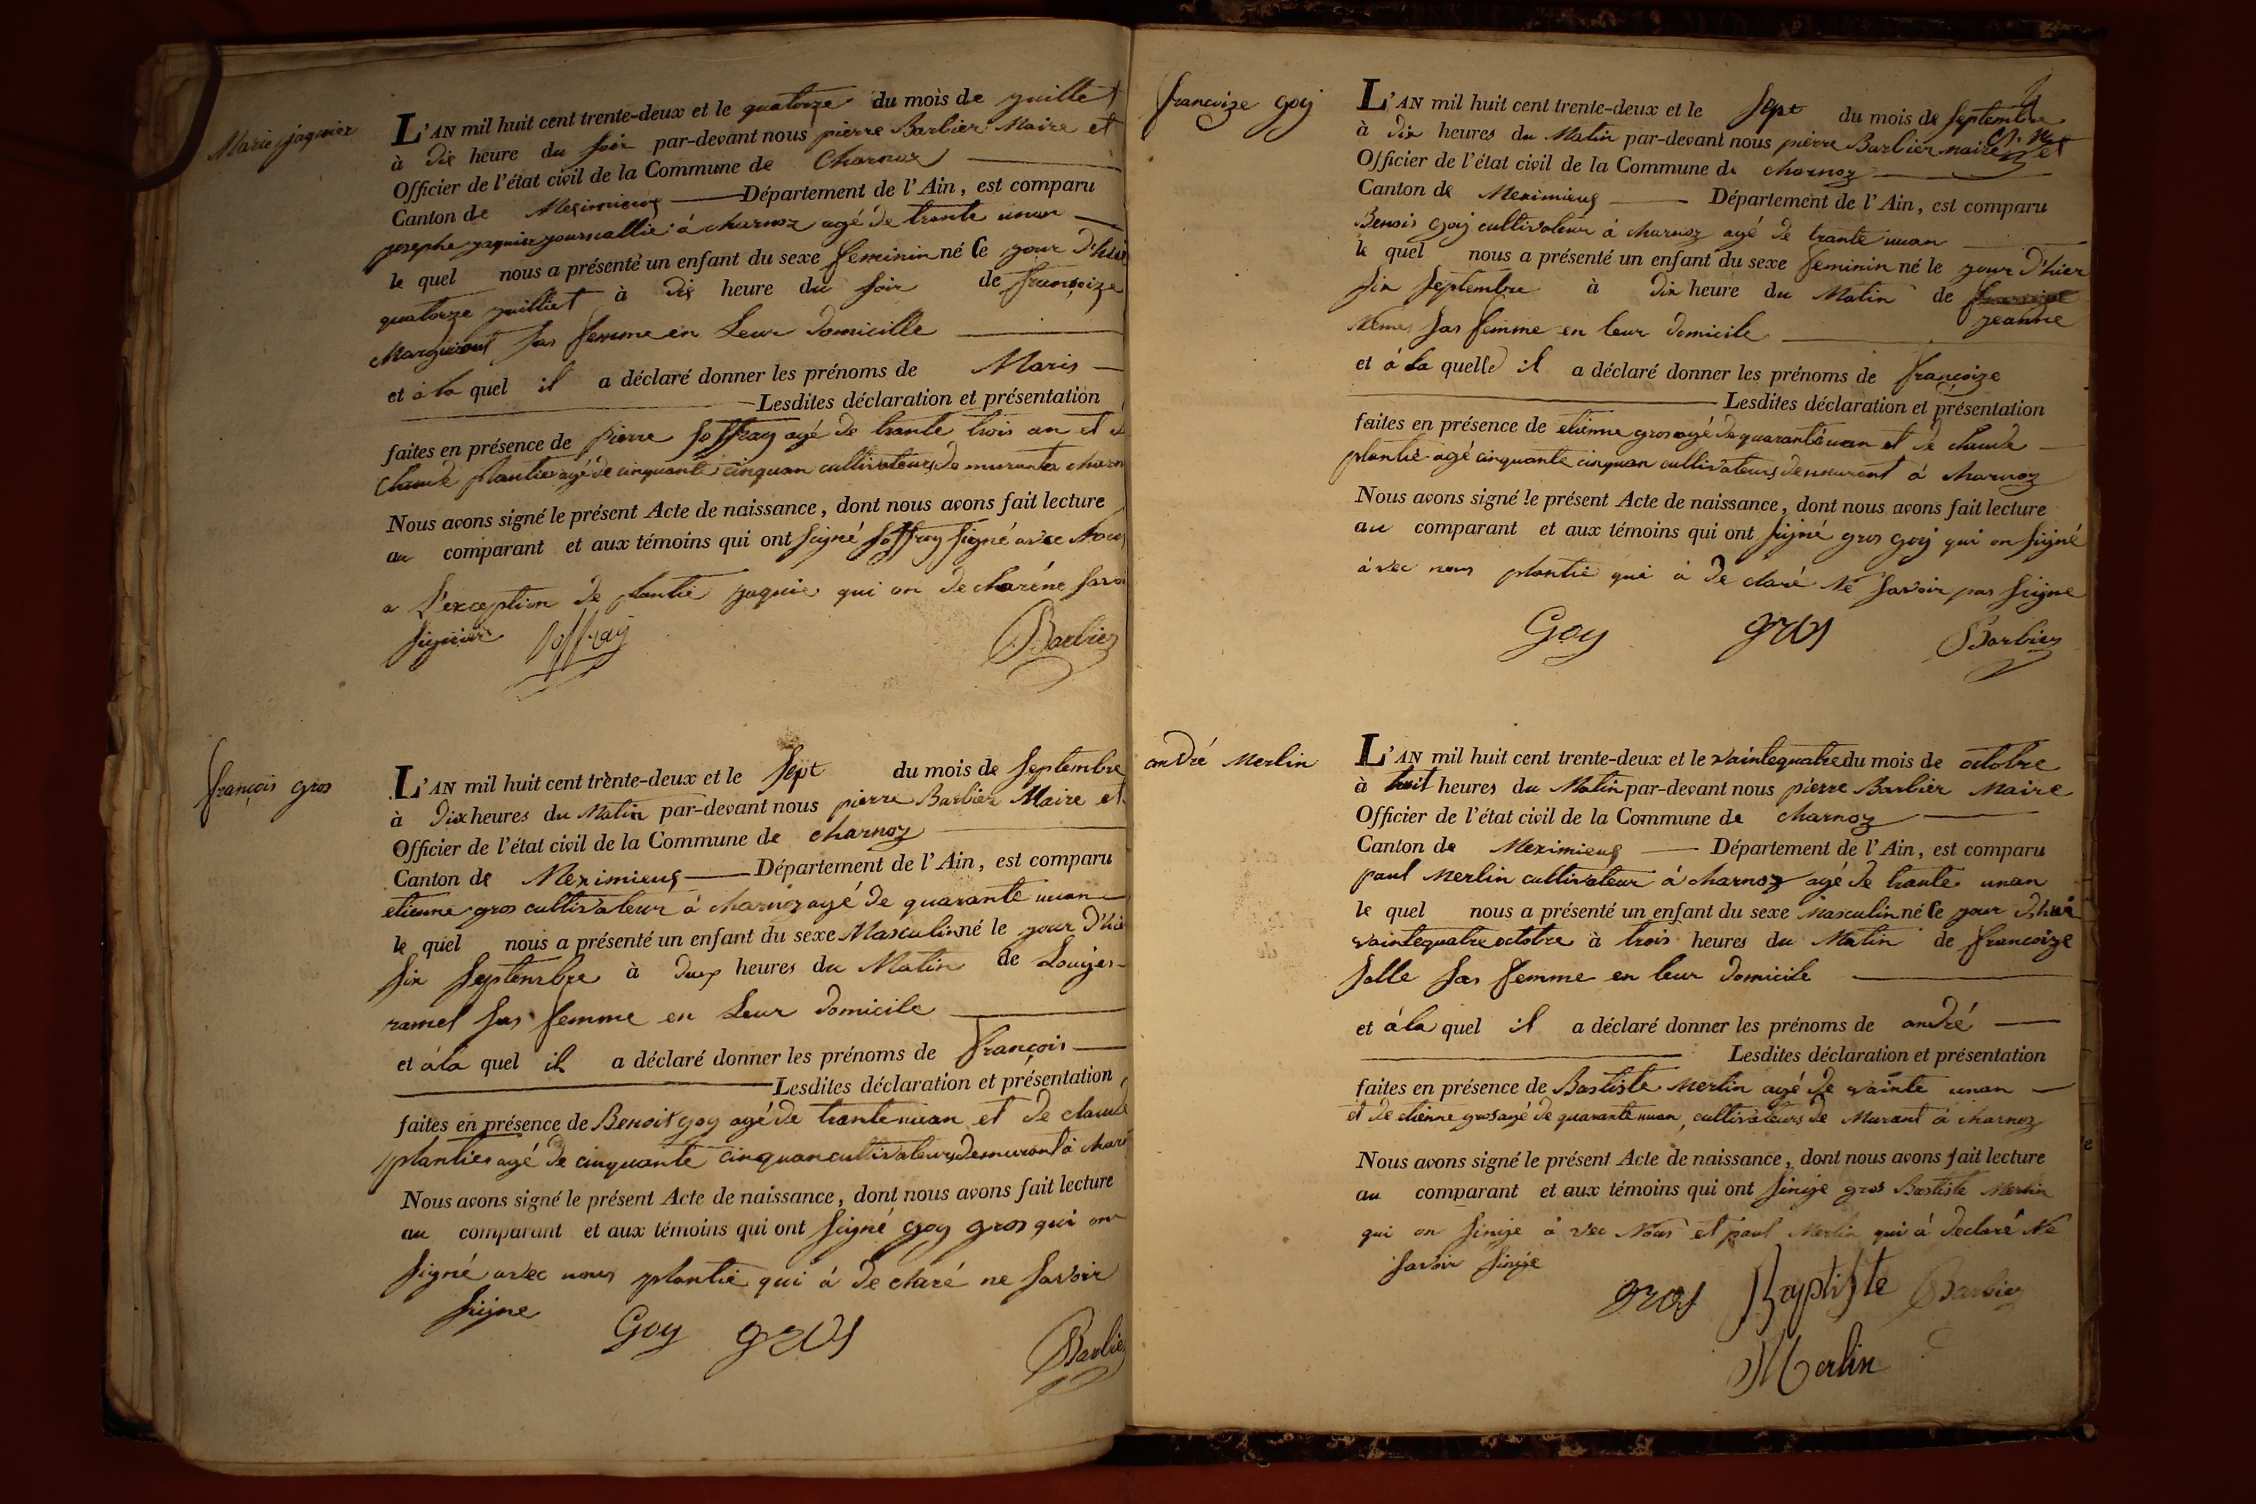 Marie jaquier
L'AN mil huit cent trente-deux et le quatorze du mois de juillet
à dix heure du soir par-devant nous pierre Barbier Maire et
Officier de l'état civil de la Commune de Charnoz
Canton de Meximieux Département de l'Ain, est comparu
josephe jaquier journallié à charnoz agé de trante unan
le quel nous a présenté un enfant du sexe feminin né le jour d'hui
quatorze juilliet à dix heure du soir de françoize
Marguirout sas femme en Leur domicille
et à la quel il a déclaré donner les prénoms de Maris
Lesdites déclaration et présentation
faites en présence de pierre soffray agé de trante trois an et de
Claude plantier agé de cinquante cinquan cultivateurs de murantes charn
Nous avons signé le présent Acte de naissance, dont nous avons fait lecture
au comparant et aux témoins qui ont signé soffray signé avec nous
a l'exception de plantié jaquie qui on de claréne savoi
signier soffray Barbier
françois gros
L'AN mil huit cent trente-deux et le sept du mois de septembre
à dix heures du Matin par-devant nous pierre Barbier Maire et
Officier de l'état civil de la Commune de charnoz
Canton de Meximieux Département de l'Ain, est comparu
etienne gros cultivateur à charnoz agé de quarante unan
le quel nous a présenté un enfant du sexe Masculin né le jour d'hié
six septembre à deux heures du Matin de Louizes
ramel sas femme en Leur domicile
et à la quel il a déclaré donner les prénoms de françois
Lesdites déclaration et présentation
faites en présence de Benoit goy agé de trante unan et de claude
plantier agé de cinquante cinquan cultivateurs demurant à charn
Nous avons signé le présent Acte de naissance, dont nous avons fait lecture
au comparant et aux témoins qui ont signé goy gros qui on
signé avec nous plantié qui à de claré ne savoir
signe Goy gros Barbier
francoize goy
L'AN mil huit cent trente-deux et le sept du mois de septembre
à dix heures du Matin par-devant nous pierre Barbier maire et
Officier de l'état civil de la Commune de charnoz
Canton de Meximieux Département de l'Ain, est comparu
Benois goy cultivateur à charnoz agé de trante unan
le quel nous a présenté un enfant du sexe feminin né le jour d'hier
six septembre à dix heure du Matin de
jeanne
sas femme en leur domicile
et à la quelle il a déclaré donner les prénoms de françoize
Lesdites déclaration et présentation
faites en présence de etienne gros agé de quarante unan et de claude
plantié agé cinquante cinquan cultivateurs demurant à charnoz
Nous avons signé le présent Acte de naissance, dont nous avons fait lecture
au comparant et aux témoins qui ont signé gros goy qui on signé
à vec nous plantié qui à de claré Ne savoir pas signe
Goy gros Barbier
andré Merlin
L'AN mil huit cent trente-deux et le vaintequatre du mois de octobre
à huit heures du Matin par-devant nous pierre Barbier Maire
Officier de l'état civil de la Commune de charnoz
Canton de Meximieux Département de l'Ain, est comparu
paul Merlin cultivateur à charnoz agé de trante unan
le quel nous a présenté un enfant du sexe Masculin né le jour d'hui
vaintequatre octobre à trois heures du Matin de francoize
salle sas femme en leur domicile
et à la quel il a déclaré donner les prénoms de andré
Lesdites déclaration et présentation
faites en présence de Bastiste Merlin agé de vainte unan
et de etienne gros agé de quarante unan, cultivateurs de Murant à charnoz
Nous avons signé le présent Acte de naissance, dont nous avons fait lecture
au comparant et aux témoins qui ont sinige gros Bastiste Merlin
qui on sinige à vec Nous et paul Merlin qui à declaré Ne
savoir sinige
gros Baptiste Barbier
Merlin